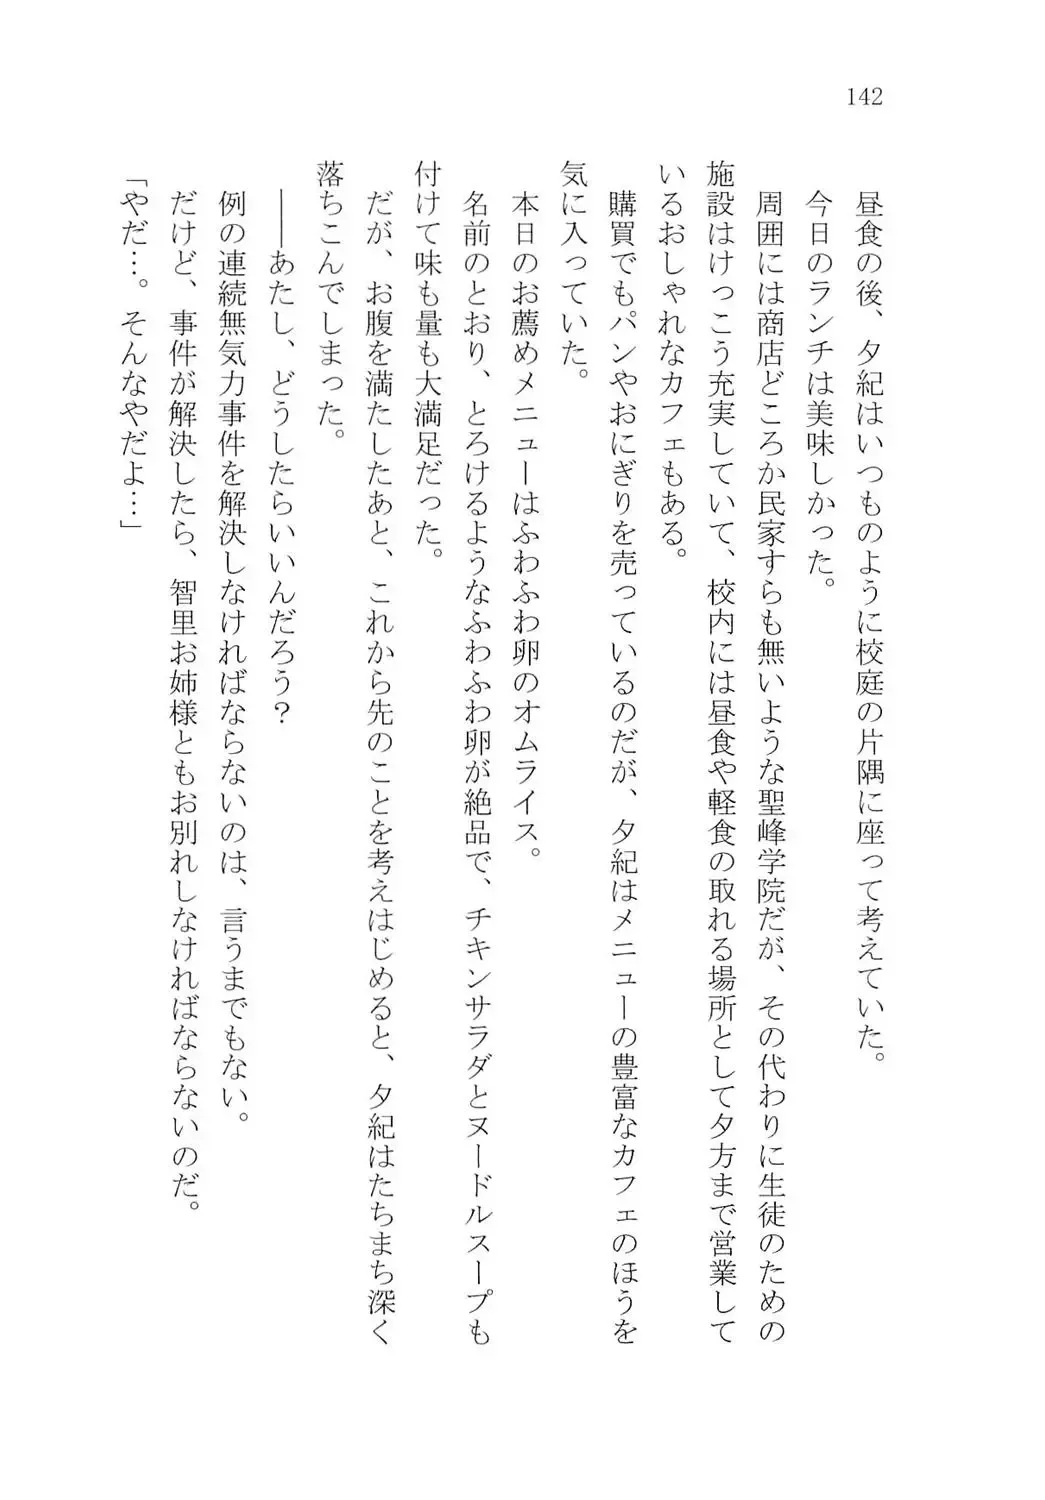 142
昼食の後、夕紀はいつものように校庭の片隅に座って考えていた。
今日のランチは美味しかった。
周囲には商店どころか民家すらも無いような聖峰学院だが、その代わりに生徒のための
施設はけっこう充実していて、校内には昼食や軽食の取れる場所として夕方まで営業して
いるおしゃれなカフェもある。
購買でもパンやおにぎりを売っているのだが、夕紀はメニューの豊富なカフェのほうを
気に入っていた。
本日のお薦めメニューはふわふわ卵のオムライス。
名前のとおり、とろけるようなふわふわ卵が絶品で、チキンサラダとヌードルスープも
付けて味も量も大満足だった。
だが、お腹を満たしたあと、これから先のことを考えはじめると、夕紀はたちまち深く
落ちこんでしまった。
――あたし、どうしたらいいんだろう？
例の連続無気力事件を解決しなければならないのは、言うまでもない。
だけど、事件が解決したら、智里お姉様ともお別れしなければならないのだ。
「やだ…。そんなやだよ…」